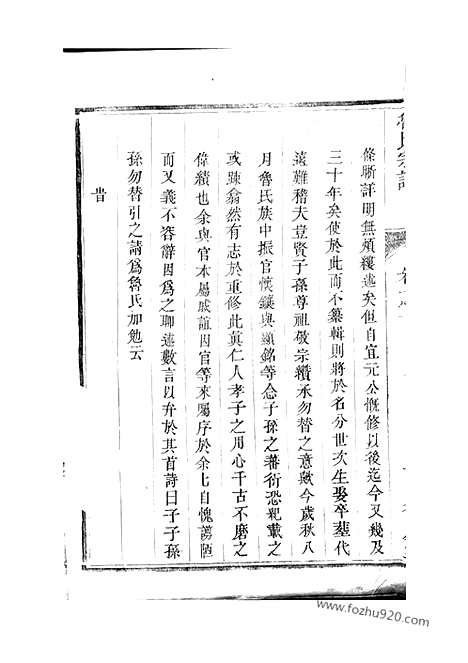 條晰詳明無煩縷述矣但自宜元公慨修以後迄今又幾及
三十年矣使於此而不纂輯則將於名分世次生娶卒塟代
遠難稽夫豈賢子孫尊祖敬宗纘承勿替之意歟今歲秋八
月魯氏族中振官懷鑲與顯銘等念子孫之蕃衍恐親戴之
或踈翕然有志於重修此眞仁人孝子之用心千古不磨之
偉績也余與官本屬戚誼因官等來屬序於余乜自愧譾陋
而又義不容辭因爲之聊述數言以弁於其首詩曰子子孫
孫勿替引之請爲魯氏加勉云
旹
www.fozhu920.com